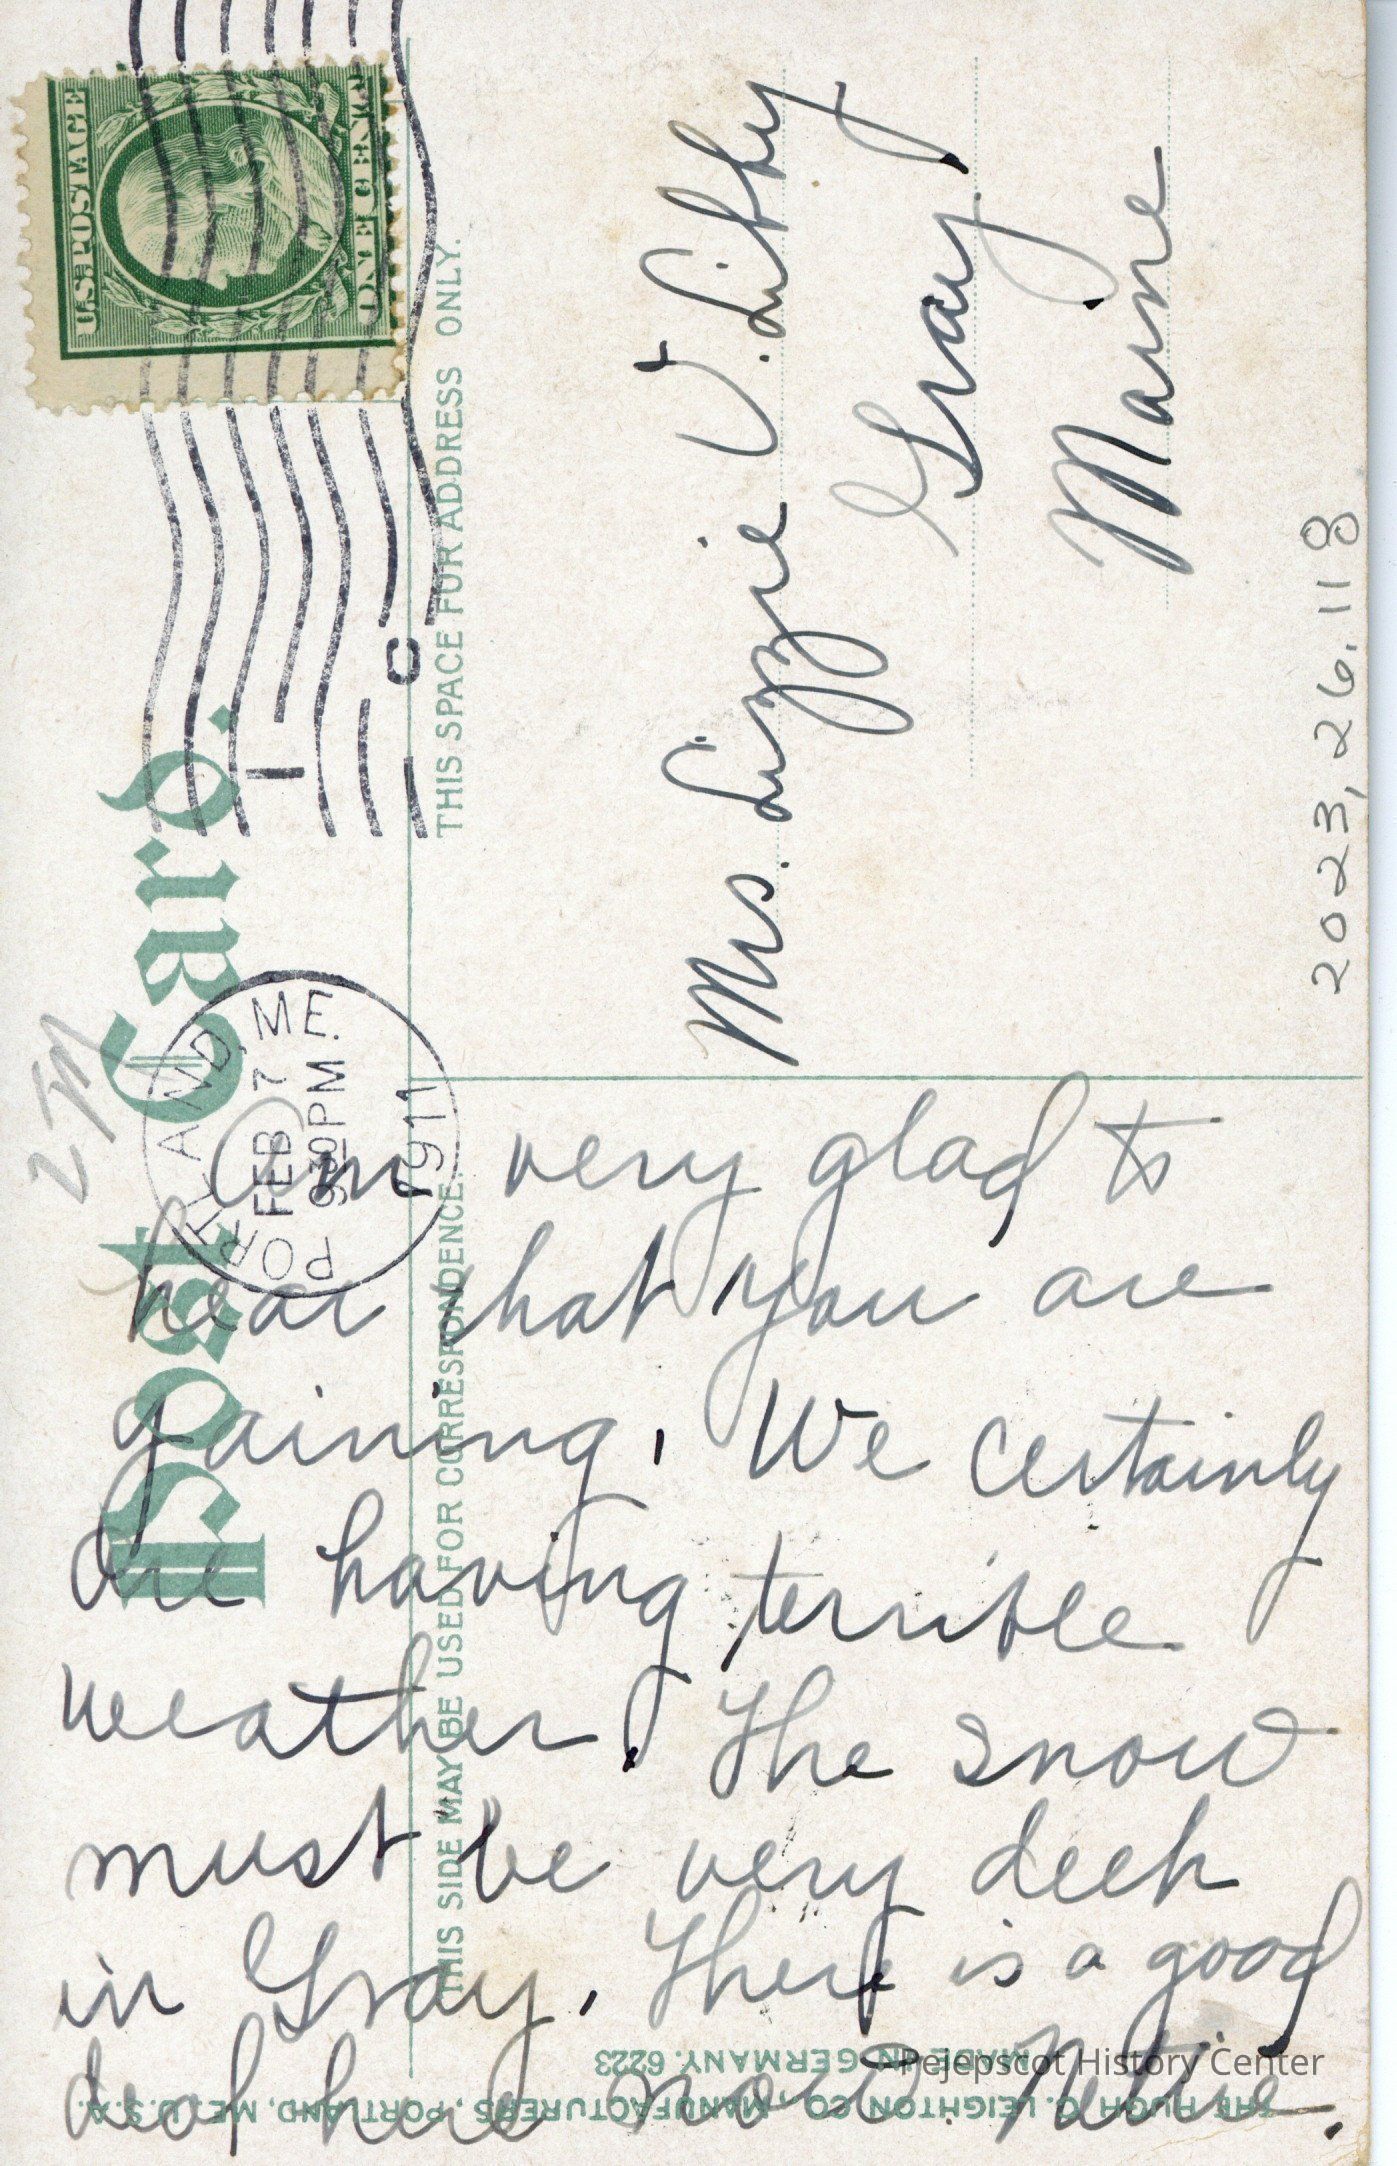 U.S. POSTAGE
ONE CENT
Post Card.
THIS SPACE FOR ADDRESS ONLY.
THIS SIDE MAY BE USED FOR CORRESPONDENCE.
PORTLAND, ME.
FEB 7
930 PM
1911
1
C
Mrs. Lizzie V. Libby
Gray,
Maine
2023.26.118
Am very glad to
hear that you are
gaining. We certainly
are having terrible
weather. The snow
must be very deep
in Gray. There is a good
deal here now.
THE HUGH C. LEIGHTON CO., MANUFACTURERS, PORTLAND, ME., U.S.A.
MADE IN GERMANY. 6223
Pejepscot History Center